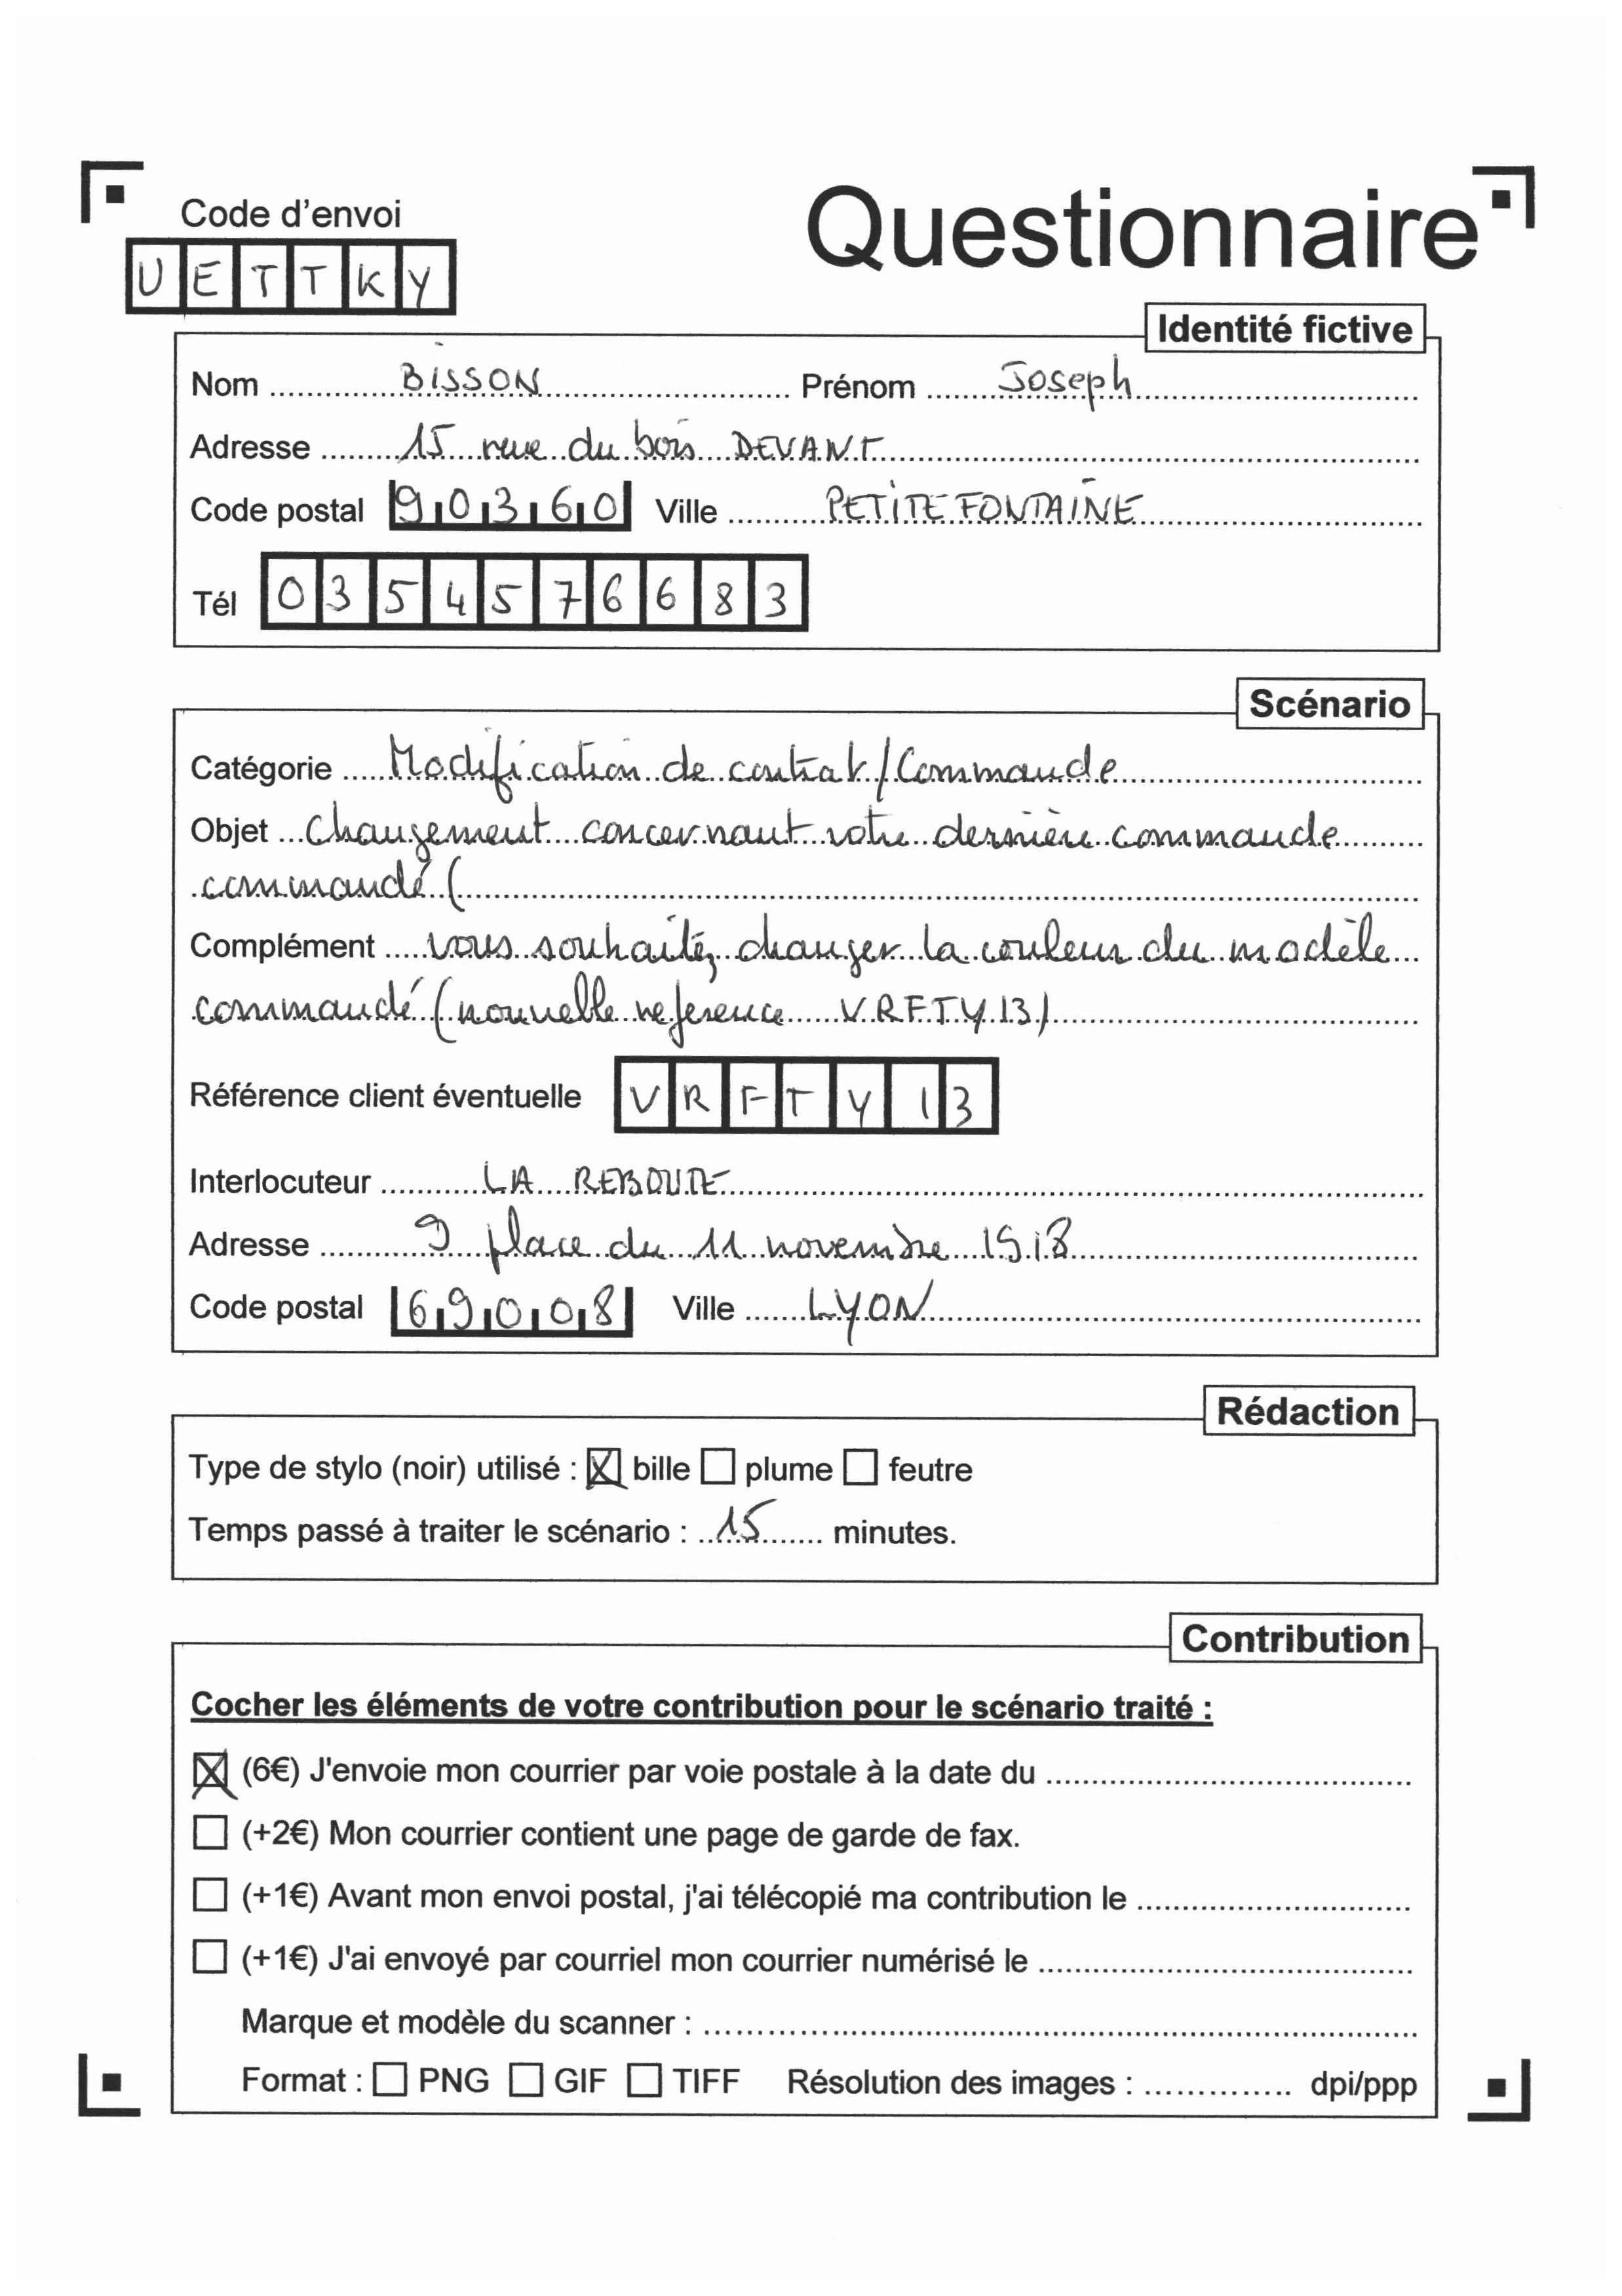 Code d'envoi
Questionnaire
UETTKY
Identité fictive
Nom BISSON Prénom Joseph
Adresse 15 rue du bois DEVANT
Code postal 90360 Ville PETITEFONTAINE
Tél 0354576683
Scénario
Catégorie Modification de contrat/Commande
Objet Changement concernant votre dernière commande
commandé (
Complément vous souhaitez changer la couleur du modèle
commandé (nouvelle reference VRFTY13)
Référence client éventuelle VRFTY13
Interlocuteur LA REBOUTE
Adresse 9 place du 11 novembre 1918
Code postal 69008 Ville LYON
Rédaction
Type de stylo (noir) utilisé : ☒ bille ☐ plume ☐ feutre
Temps passé à traiter le scénario : 15 minutes.
Contribution
Cocher les éléments de votre contribution pour le scénario traité :
☒ (6€) J'envoie mon courrier par voie postale à la date du
☐ (+2€) Mon courrier contient une page de garde de fax.
☐ (+1€) Avant mon envoi postal, j'ai télécopié ma contribution le
☐ (+1€) J'ai envoyé par courriel mon courrier numérisé le
Marque et modèle du scanner :
Format : ☐ PNG ☐ GIF ☐ TIFF Résolution des images : dpi/ppp